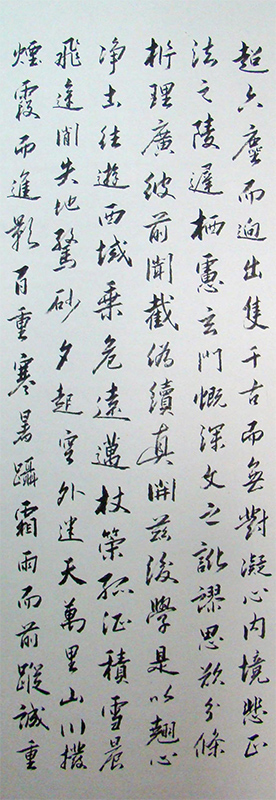 超六塵而迥出隻千古而無對凝心内境悲正
法之陵遲栖慮玄門慨深文之訛謬思欲分條
析理廣彼前聞截僞續真開茲後學是以翹心
净土往遊西域乘危遠邁杖策孤征積雪晨
飛途間失地驚砂夕起空外迷天萬里山川撥
煙霞而進影百重寒暑躡霜雨而前蹤誠重